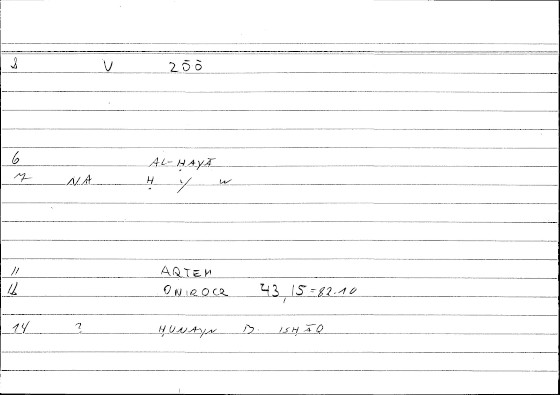 8 V 2ōō
6 AL-ḤAYĀ
7 NA Ḥ Y W
11 ARTEM
12 ONIROCR 43,15=82.10
14 ? ḤUNAYN B. ISḤĀQ